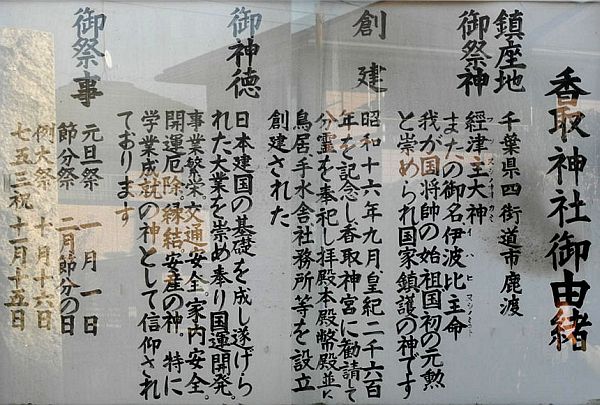 香取神社御由緒
鎮座地
千葉県四街道市鹿渡
御祭神
經津主大神
フツヌシノオオカミ
またの御名伊波比主命
イハヒヌシノミコト
我が国将帥の始祖国初の元勲
と崇められ国家鎮護の神です
創建
昭和十六年九月皇紀二千六百
年を記念し香取神宮に勧請して
分霊を奉祀し拝殿本殿幣殿並に
鳥居手水舎社務所等を設立
創建された
御神徳
日本建国の基礎を成し遂げら
れた大業を崇め奉り国運開発。
事業繁栄。交通安全。家内安全。
開運厄除縁結安産の神。特に
学業成就の神として信仰され
ております
御祭事
元旦祭 一月一日
節分祭 二月節分の日
例大祭 十月十六日
七五三祝 十一月十五日